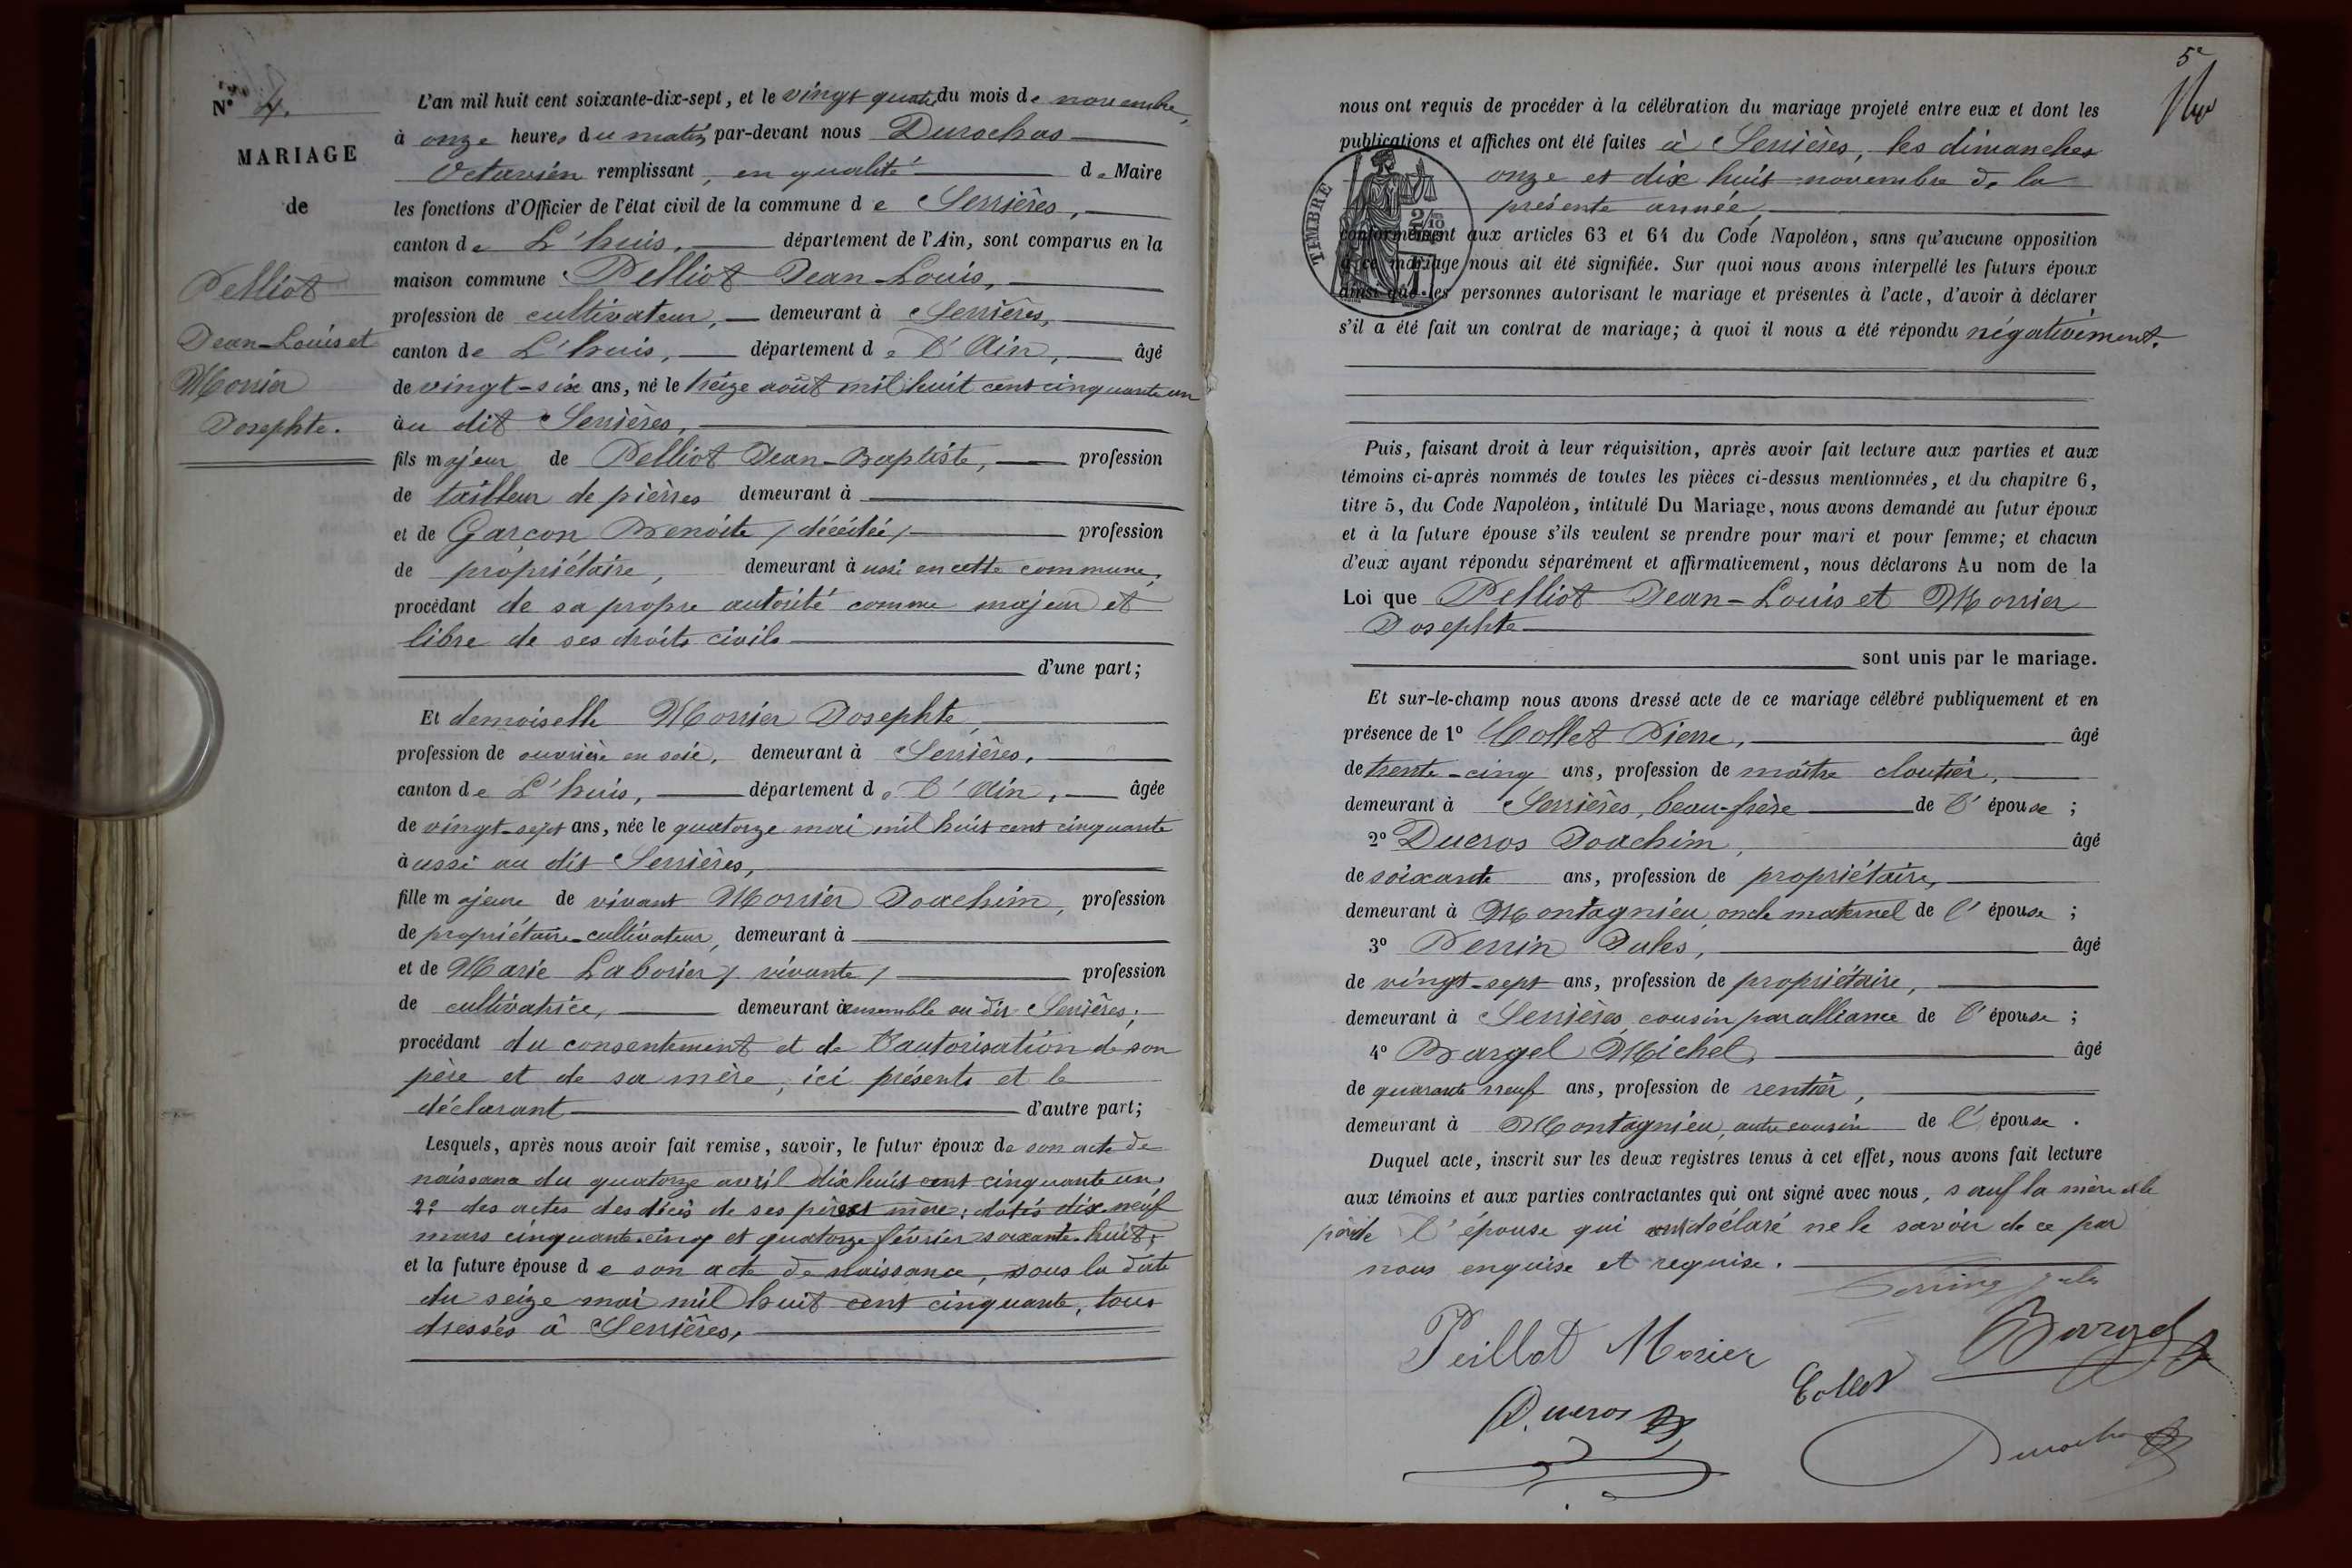 N° 4.
MARIAGE
de
Pelliot
Jean-Louis et
Morrier
Josephte.
L'an mil huit cent soixante-dix-sept, et le vingt quatre du mois de novembre,
à onze heures du matin, par-devant nous Durochas
Octavien remplissant, en qualité de Maire
les fonctions d'Officier de l'état civil de la commune de Serrières,
canton de L'huis, département de l'Ain, sont comparus en la
maison commune Pelliot Jean-Louis,
profession de cultivateur, demeurant à Serrières,
canton de L'huis, département de l'Ain, âgé
de vingt-six ans, né le treize août mil huit cent cinquante un
àu dit Serrières,
fils majeur de Pelliot Jean-Baptiste, profession
de tailleur de pierres demeurant à
et de Garçon Benoite / décédée / profession
de propriétaire, demeurant à ussi en cette commune,
procédant de sa propre autorité comme majeur et
libre de ses droits civils
d'une part;
Et demoiselle Morrier Josephte
profession de ouvrière en soie, demeurant à Serrières,
canton de L'huis, département de l'Ain, âgée
de vingt-sept ans, née le quatorze mai mil huit cent cinquante
àussi au dit Serrières,
fille majeure de vivant Morrier Joachim, profession
de propriétaire-cultivateur, demeurant à
et de Marie Laborier / vivante / profession
de cultivatrice, demeurant à ensemble au dit Serrières;
procédant du consentement et de l'autorisation de son
père et de sa mère, ici présents et le
déclarant d'autre part;
Lesquels, après nous avoir fait remise, savoir, le futur époux de son acte de
naissance du quatorze avril dix huit cent cinquante un,
2° des actes des décès de ses père et mère: datés dix-neuf
mars cinquante-cinq et quatorze février soixante-huit;
et la future épouse de son acte de naissance, sous la date
du seize mai mil huit cent cinquante, tous
dressés à Serrières,
5e
nous ont requis de procéder à la célébration du mariage projeté entre eux et dont les
publications et affiches ont été faites à Serrières, les dimanches
onze et dix huit novembre de la
présente année,
TIMBRE
2/10
conformément aux articles 63 et 64 du Code Napoléon, sans qu'aucune opposition
à ce mariage nous ait été signifiée. Sur quoi nous avons interpellé les futurs époux
ainsi que les personnes autorisant le mariage et présentes à l'acte, d'avoir à déclarer
s'il a été fait un contrat de mariage; à quoi il nous a été répondu négativement.
Puis, faisant droit à leur réquisition, après avoir fait lecture aux parties et aux
témoins ci-après nommés de toutes les pièces ci-dessus mentionnées, et du chapitre 6,
titre 5, du Code Napoléon, intitulé Du Mariage, nous avons demandé au futur époux
et à la future épouse s'ils veulent se prendre pour mari et pour femme; et chacun
d'eux ayant répondu séparément et affirmativement, nous déclarons Au nom de la
Loi que Pelliot Jean-Louis et Morrier
Josephte
sont unis par le mariage.
Et sur-le-champ nous avons dressé acte de ce mariage célébré publiquement et en
présence de 1° Collet Pierre, âgé
de trente-cinq ans, profession de maître cloutier,
demeurant à Serrières, beau-frère de l'épouse;
2° Ducros Joachim, âgé
de soixante ans, profession de propriétaire,
demeurant à Montagnieu, oncle maternel de l'épouse;
3° Perrin Jules, âgé
de vingt-sept ans, profession de propriétaire,
demeurant à Serrières, cousin par alliance de l'épouse;
4° Bargel Michel, âgé
de quarante neuf ans, profession de rentier,
demeurant à Montagnieu, autre cousin de l'épouse.
Duquel acte, inscrit sur les deux registres tenus à cet effet, nous avons fait lecture
aux témoins et aux parties contractantes qui ont signé avec nous, sauf la mère et le
père de l'épouse qui ont déclaré ne le savoir de ce par
nous enquise et requise.
Peillot Morier
Bargel
Collet
Ducros